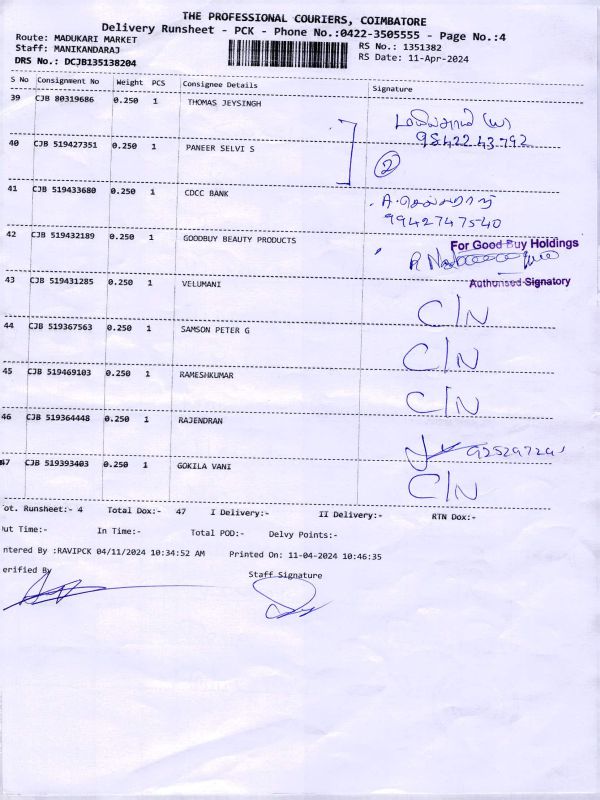 THE PROFESSIONAL COURIERS, COIMBATORE
Delivery Runsheet - PCK - Phone No.:0422-3505555 - Page No.:4
Route: MADUKARI MARKET
RS No.: 1351382
Staff: MANIKANDARAJ
RS Date: 11-Apr-2024
DRS No.: DCJB135138204
S No Consignment No Weight PCS Consignee Details Signature
39 CJB 80319686 0.250 1 THOMAS JEYSINGH
95422 43792
40 CJB 519427351 0.250 1 PANEER SELVI S
2
41 CJB 519433680 0.250 1 CDCC BANK
9942747540
42 CJB 519432189 0.250 1 GOODBUY BEAUTY PRODUCTS For Good Buy Holdings
Authorised Signatory
43 CJB 519431285 0.250 1 VELUMANI C/N
44 CJB 519367563 0.250 1 SAMSON PETER G C/N
45 CJB 519469103 0.250 1 RAMESHKUMAR C/N
46 CJB 519364448 0.250 1 RAJENDRAN
47 CJB 519393403 0.250 1 GOKILA VANI C/N
ot. Runsheet:- 4 Total Dox:- 47 I Delivery:- II Delivery:- RTN Dox:-
ut Time:- In Time:- Total POD:- Delvy Points:-
ntered By :RAVIPCK 04/11/2024 10:34:52 AM Printed On: 11-04-2024 10:46:35
erified By Staff Signature